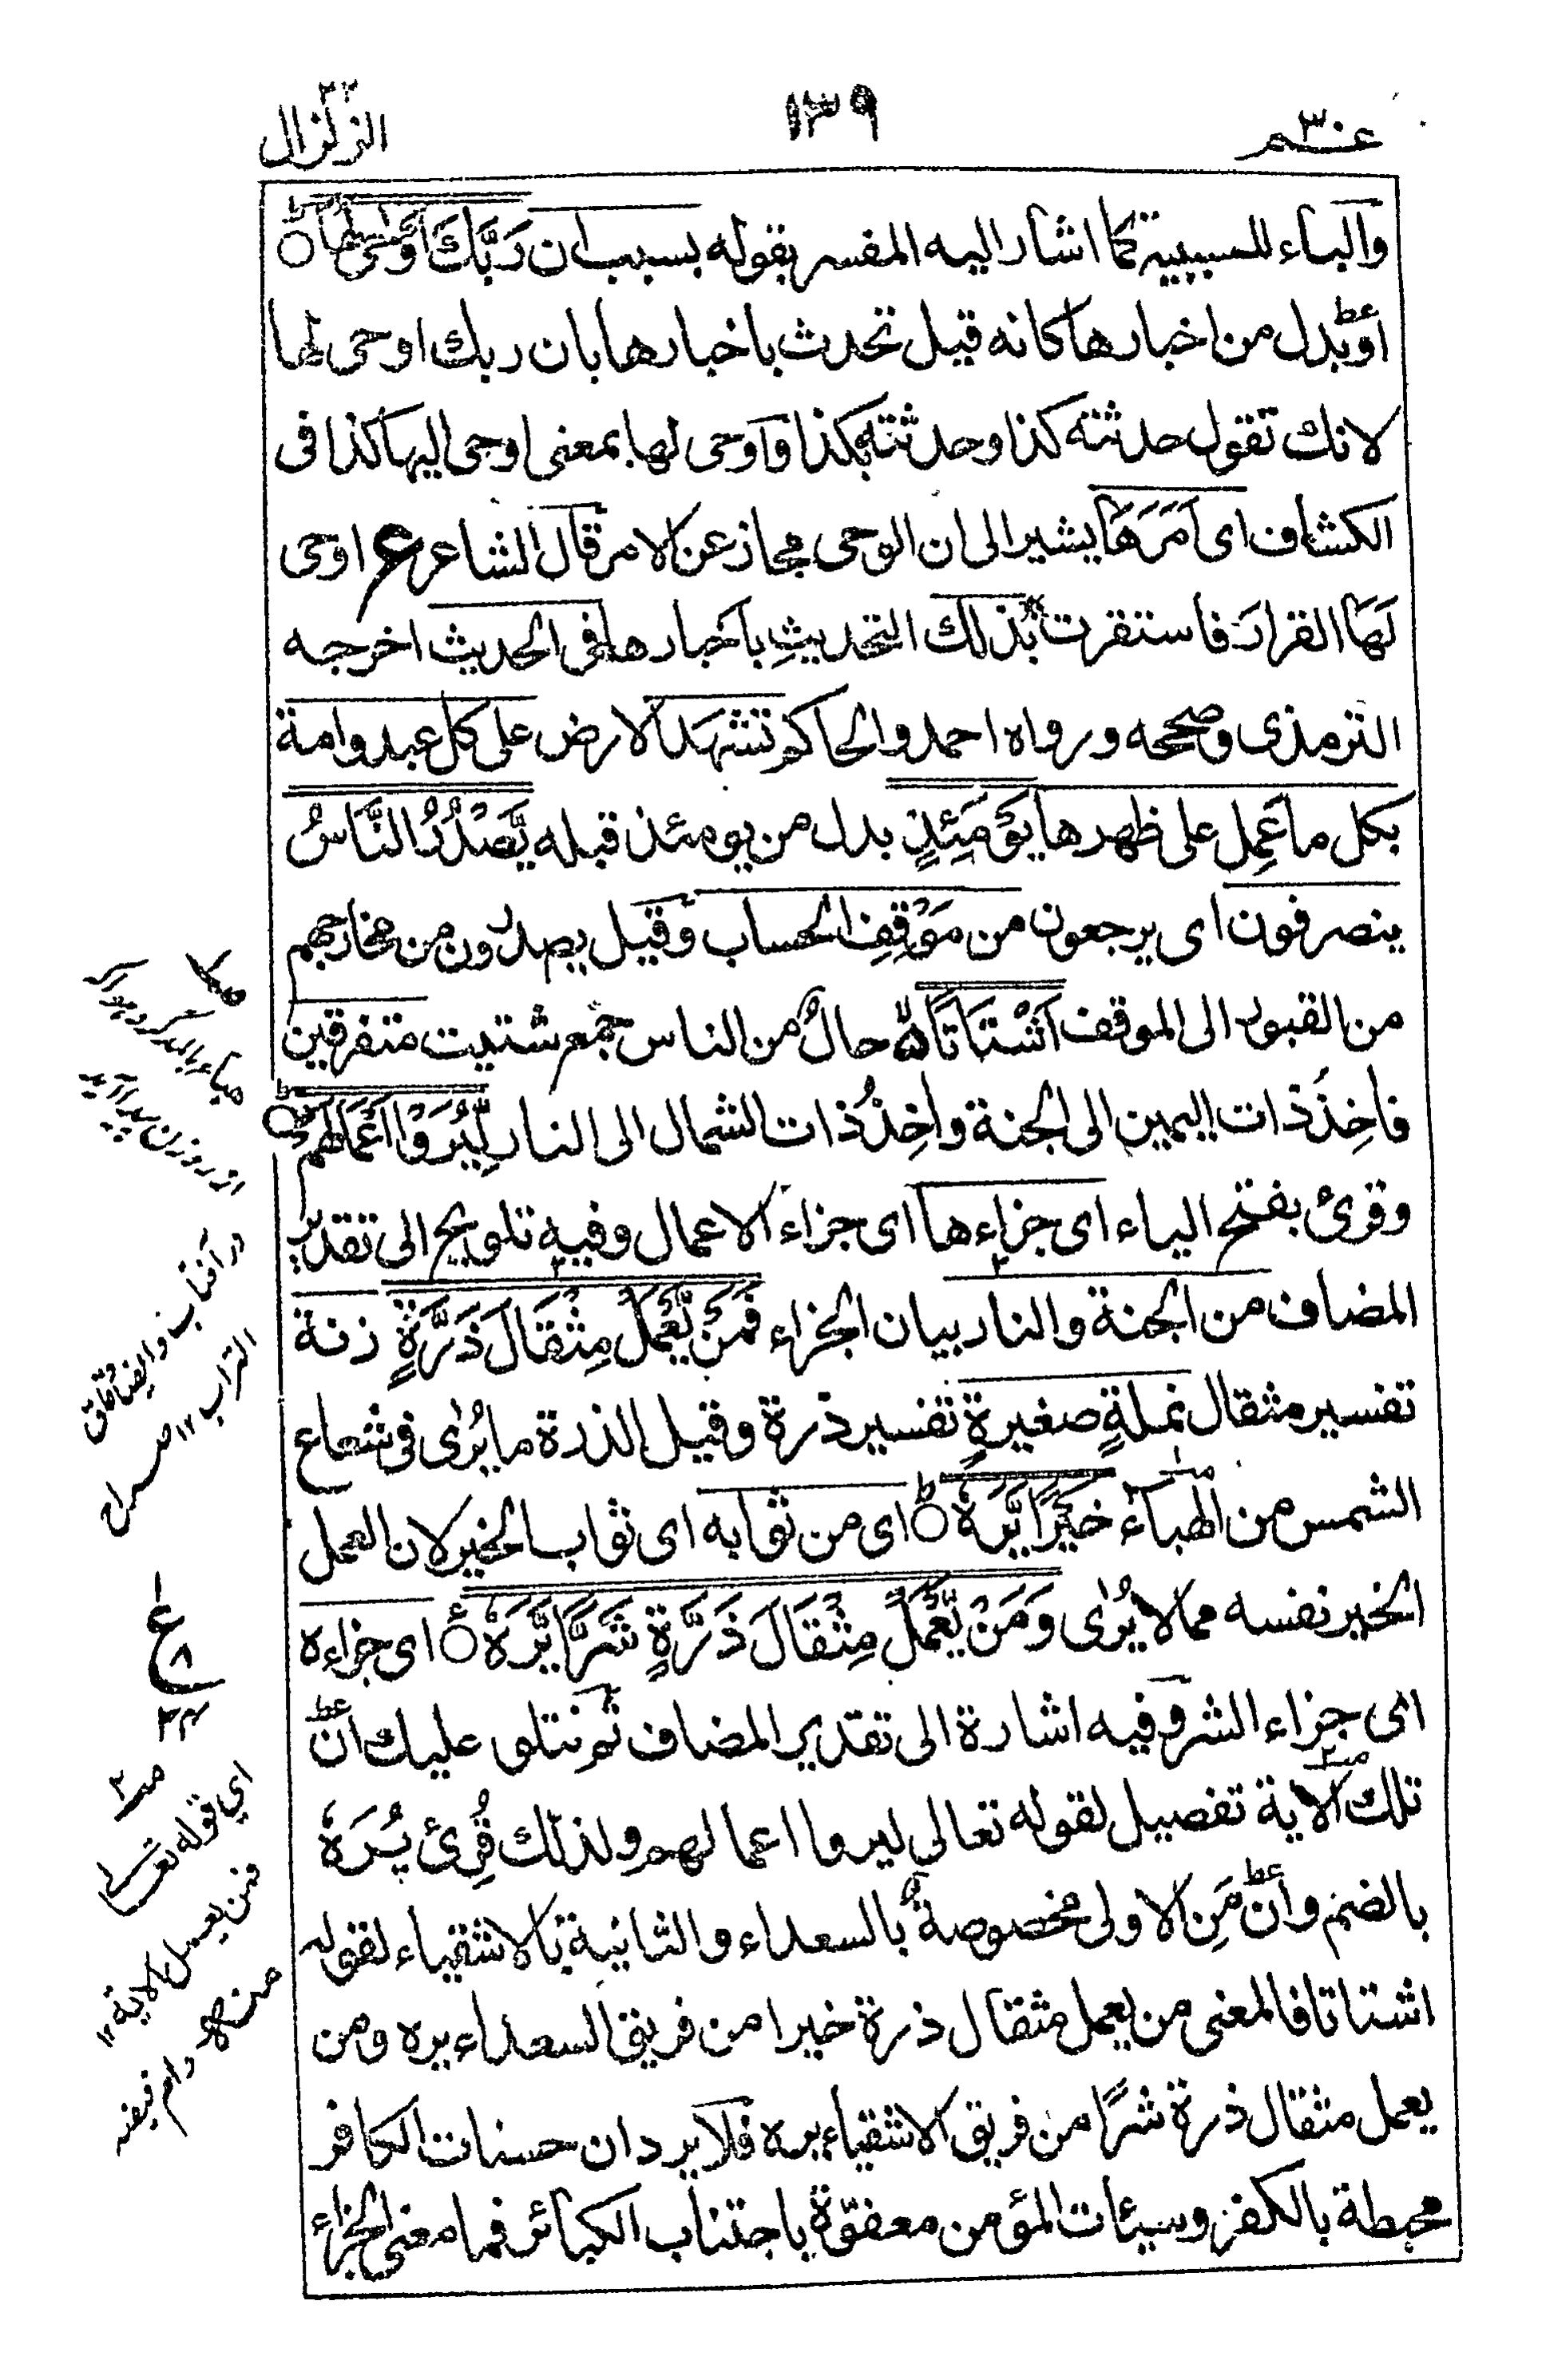 عم ٣٠
١٣٩
الزلزال
والباء للسببية كما اشار اليه المفسر بقوله بسبب ان رَبَّكَ اَوْحٰى لَهَا ؕ
اوبدل من اخبارها كانه قيل تحدث باخبارها بان ربك اوحى لها
لانك تقول حدثته كذا وحدثته بكذا واوحى لها بمعنى اوحى اليها كذا فى
الكشاف اى اَمَرَهَا يشير الى ان الوحى مجاز عن الامر قال الشاعر ع اوحى
لَهَا القرارَ فاستقرت بذلك التحديثِ باخبارها فى الحديث اخرجه
الترمذى وصححه ورواه احمد والحاكم تشهد الارض على كل عبد وامة
بكل ما عَمِل على ظهرها يَوْمَئِذٍ بدل من يومئذ قبله يَّصْدُرُ النَّاسُ
ينصرفون اى يرجعون من مَوْقِفِ الحساب وقيل يصدرون من مخارجهم
من القبور الى الموقف اَشْتَاتًا ۙ حالٌ من الناس جمع شتيت متفرقين
فاخِذُ ذات اليمين الى الجنة واخِذُ ذات الشمال الى النار لِّيُرَوْا اَعْمَالَهُمْ ؕ
وقرئ بفتح الياء اى جزاءها اى جزاء الاعمال وفيه تلويح الى تقدير
المضاف من الجنة والنار بيان الجزاء فَمَنْ يَّعْمَلْ مِثْقَالَ ذَرَّةٍ زنة
تفسير مثقال نملةٍ صغيرةٍ تفسير ذرة وقيل الذرة ما يُرٰى فى شعاع
الشمس من الهباء خَيْرًا يَّرَهٗ ؕ اى من ثوابه اى ثواب الخير لان العمل
الخير نفسه مما لا يُرٰى وَمَنْ يَّعْمَلْ مِثْقَالَ ذَرَّةٍ شَرًّا يَّرَهٗ اى جزاءه
اى جزاء الشر وفيه اشارة الى تقدير المضاف ثم نتلو عليك انّ
تلك الاية تفصيل لقوله تعالى ليروا اعمالهم ولذلك قُرِئَ يُرَهٗ
بالضم وانّ مَن الاولى مخصوصةٌ بالسعداء والثانية بالاشقياء لقوله
اشتاتا فالمعنى من يعمل مثقال ذرة خيرا من فريق السعداء يره ومن
يعمل مثقال ذرة شرًّا من فريق الاشقياء يره فلا يرد ان حسنات الكافر
محبطة بالكفر وسيئات المؤمن معفوّة باجتناب الكبائر فما معنى الجزاء
از روزن پديد آيد
در آفتاب وايضا دقاق
التراب ١٢ صراح
ع
٨
٢٤
اي قوله تعالى
فمن يعمل الاية ١٢
منه دام فيضه